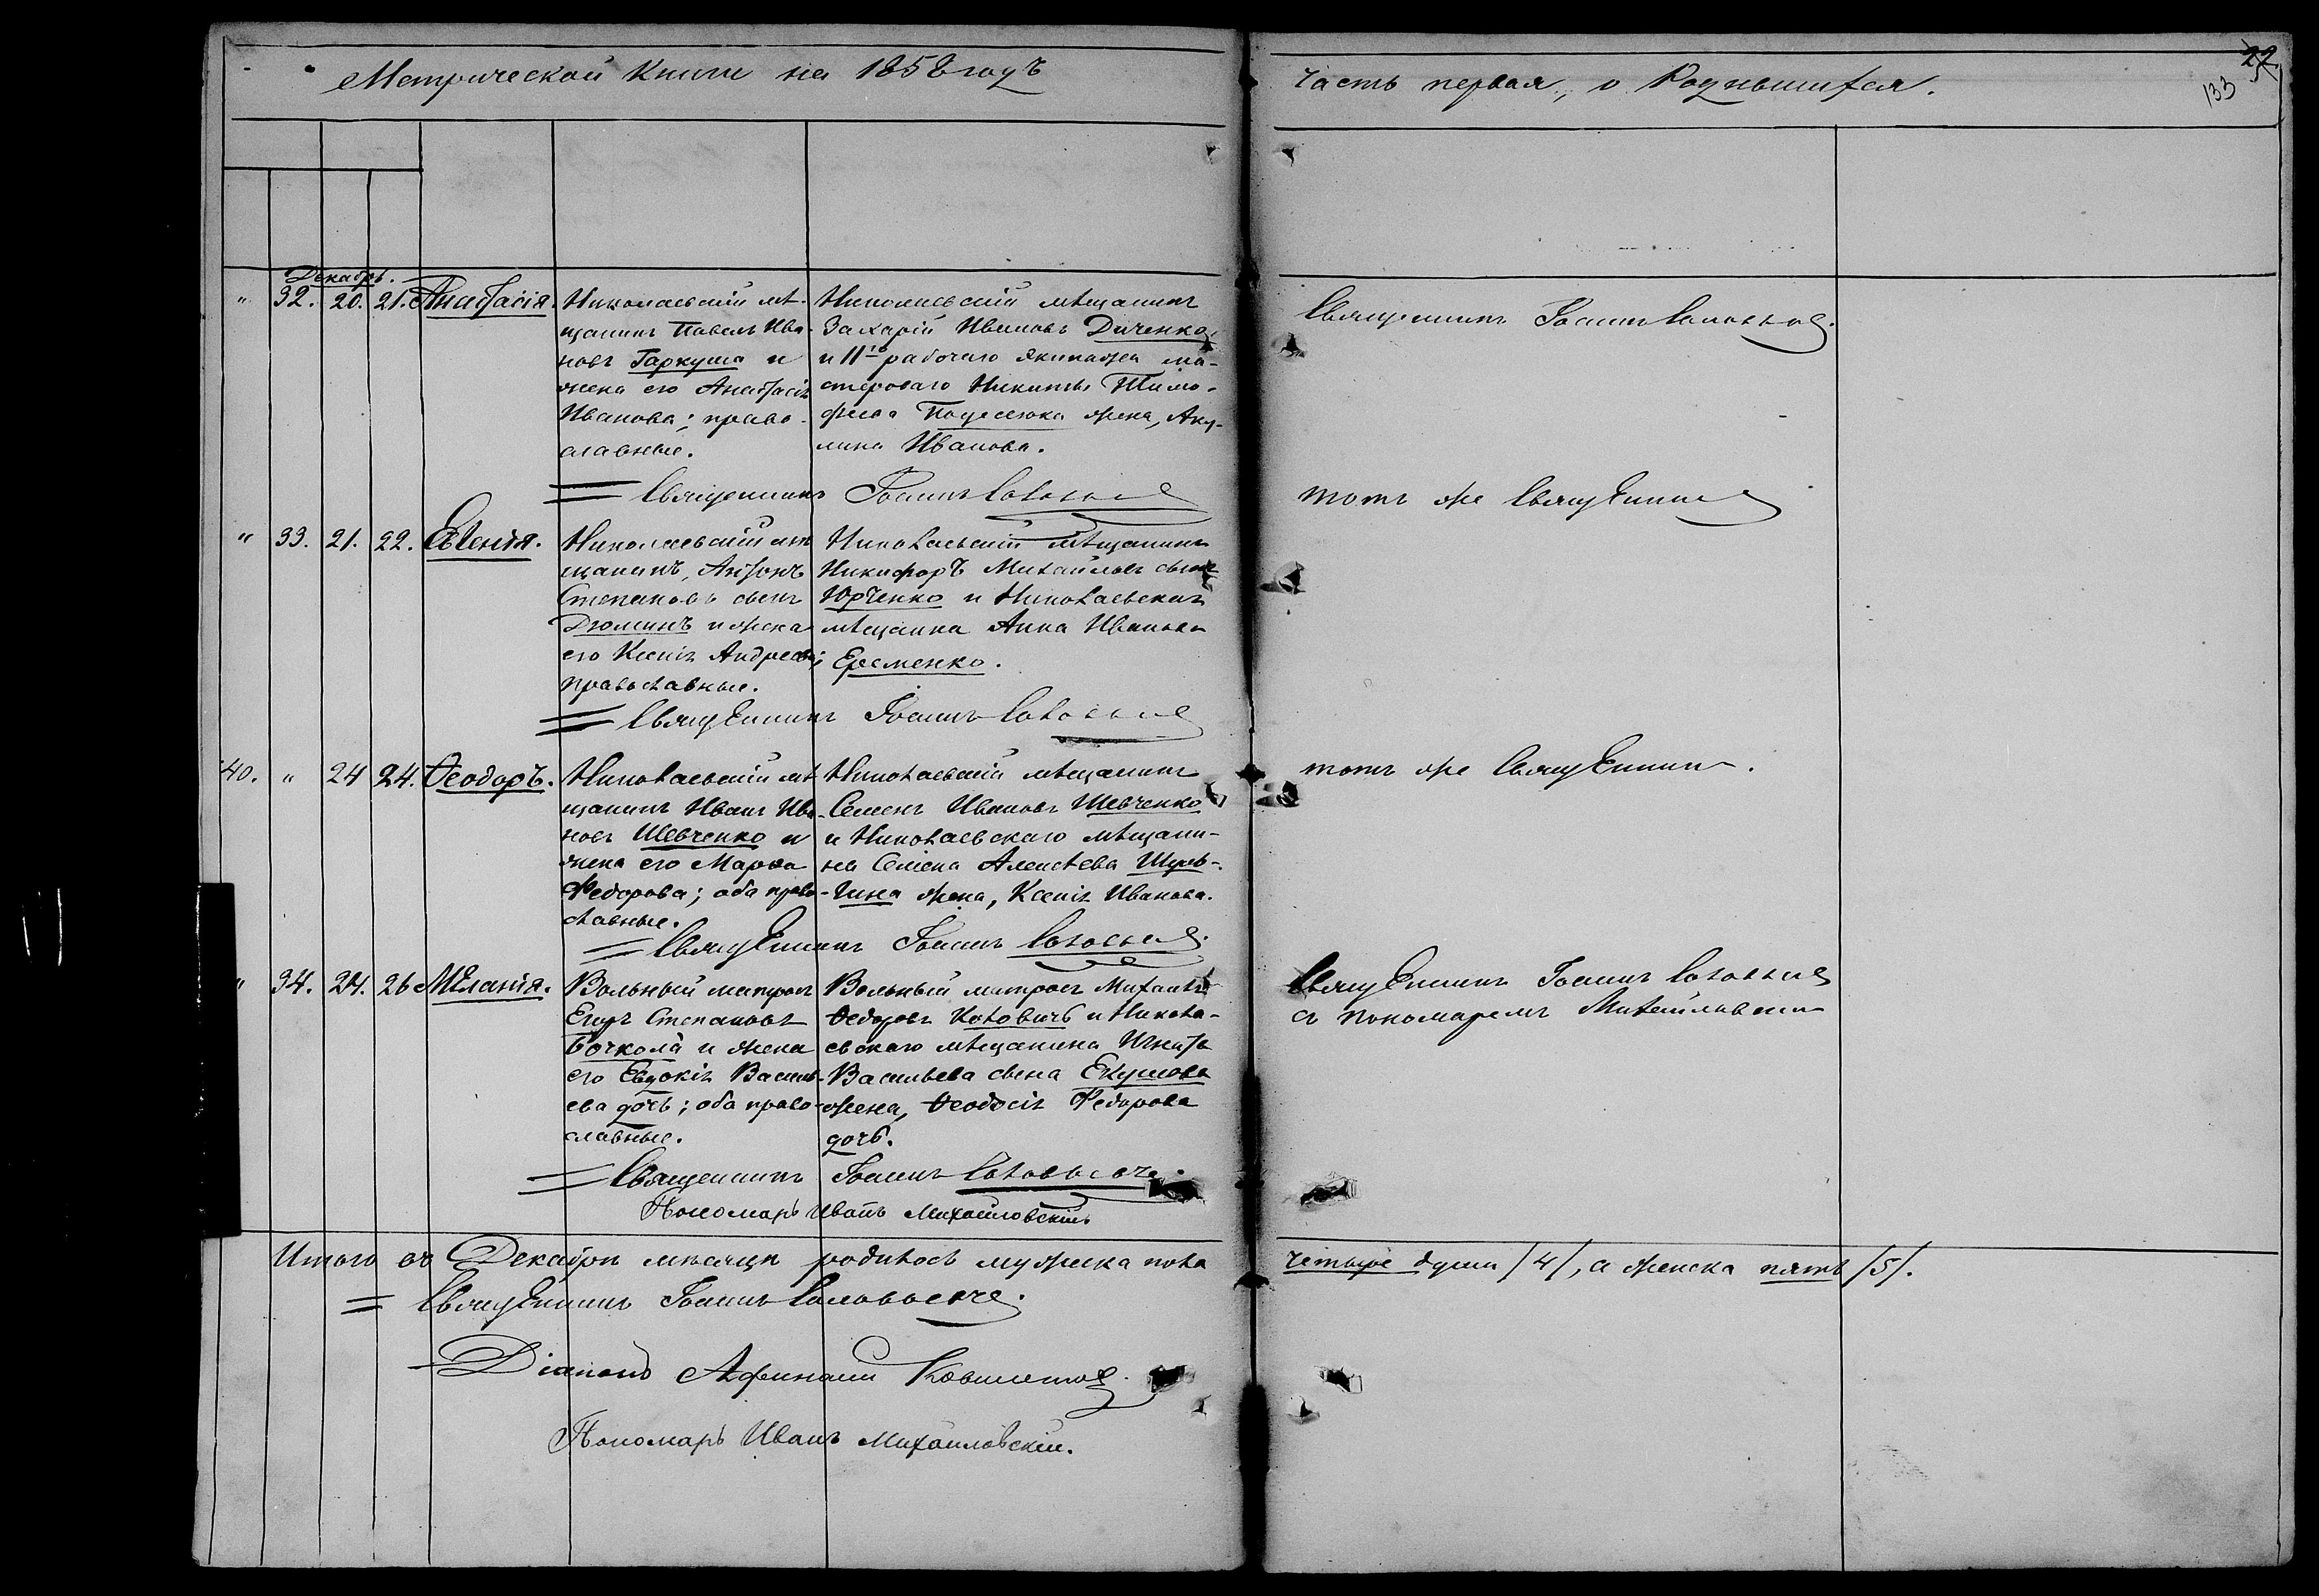 Метрической Книги на 1858 годъ
часть первая, о Родившихся.
22
133
Декабрь.
" 32. 20. 21. Анастасія.
Николаевскій мѣ-
щанинъ Павелъ Ива-
новъ Гаркуша и
жена его Анастасія
Иванова; право-
славные.
Николаевскій мѣщанинъ
Захарій Ивановъ Диченко
и 11го рабочаго экипажа ма-
стероваго Никиты Тимо-
феева жена, Аку-
лина Иванова.
Священникъ Іоаннъ
= Священникъ Іоаннъ
тотъ же Священникъ
" 33. 21. 22. Евгенія.
Николаевскій мѣ
щанинъ, Антонъ
Степановъ сынъ
Дюминъ и жена
его Ксенія Андреева;
православные.
Николаевскій мѣщанинъ
Никифоръ Михайловъ сынъ
Юрченко и Николаевская
мѣщанка Анна Иванова
Еременко.
= Священникъ Іоаннъ
тотъ же Священникъ.
40. " 24 24. Ѳеодоръ.
Николаевскій мѣ
щанинъ Иванъ Ива-
новъ Шевченко и
жена его Марѳа
Федорова; оба право-
славные.
Николаевскій мѣщанинъ
Семенъ Ивановъ Шевченко
и Николаевскаго мѣщани-
на Семена Алексѣева Шуль-
гина жена, Ксенія Иванова.
= Священникъ Іоаннъ
" 34. 24. 26 Меланія.
Вольный матросъ
Егоръ Степановъ
Бочкола и жена
его Евдокія Василь-
ева дочь; оба право-
славные.
Вольный матросъ Михаилъ
Ѳедоровъ Коловичь и Никола-
евскаго мѣщанина Игнатія
Васильева сына Екушова
жена, Ѳеодосія Федорова
дочь.
Священникъ Іоаннъ
съ пономаремъ Михайловскимъ
= Священникъ Іоаннъ
Пономарь Иванъ Михайловскій
Итого въ Декабрѣ мѣсяцѣ родилось мужеска пола
четыре души /4/, а женска пять /5/.
= Священникъ Іоаннъ
Діаконъ Афанасій
Пономарь Иванъ Михайловскій.